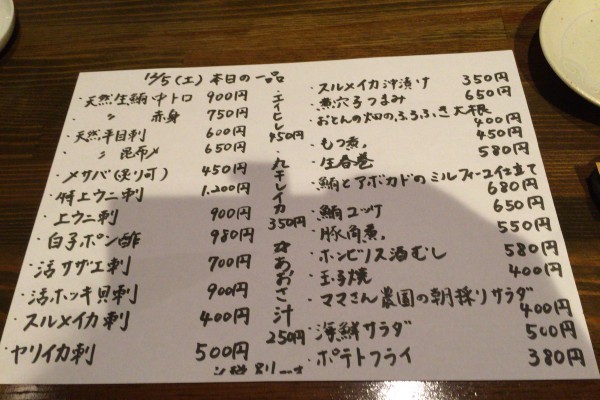 12/5(土) 本日の一品
・天然生鮪中トロ 900円
〃 赤身 750円
・天然平目刺 600円
〃 昆布〆 650円
・メサバ(炙り可) 450円
・特上ウニ刺 1.200円
・上ウニ刺 900円
・白子ポン酢 980円
・活サザエ刺 700円
・活ホッキ貝刺 900円
・スルメイカ刺 400円
ヤリイカ刺 500円
・エイヒレ 450円
・丸干しイカ 350円
あおさ汁 250円
・スルメイカ沖漬け 350円
・魚穴子つまみ 650円
・おとんの畑のふろふき大根 400円
・もつ煮。 450円
・生春巻 580円
・鮪とアボカドのミルフィーユ仕立て 680円
・鮪ユッケ 650円
・豚角煮。 550円
・ホンビノス酒むし 580円
・玉子焼 400円
・ママさん農園の朝採りサラダ 400円
・海鮮サラダ 500円
・ポテトフライ 380円